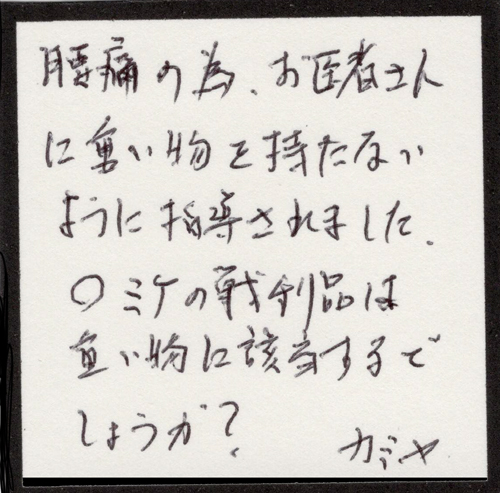 腰痛の為、お医者さん
に重い物を持たない
ように指導されました。
〇ミケの戦利品は
重い物に該当するで
しょうか?
カミヤ